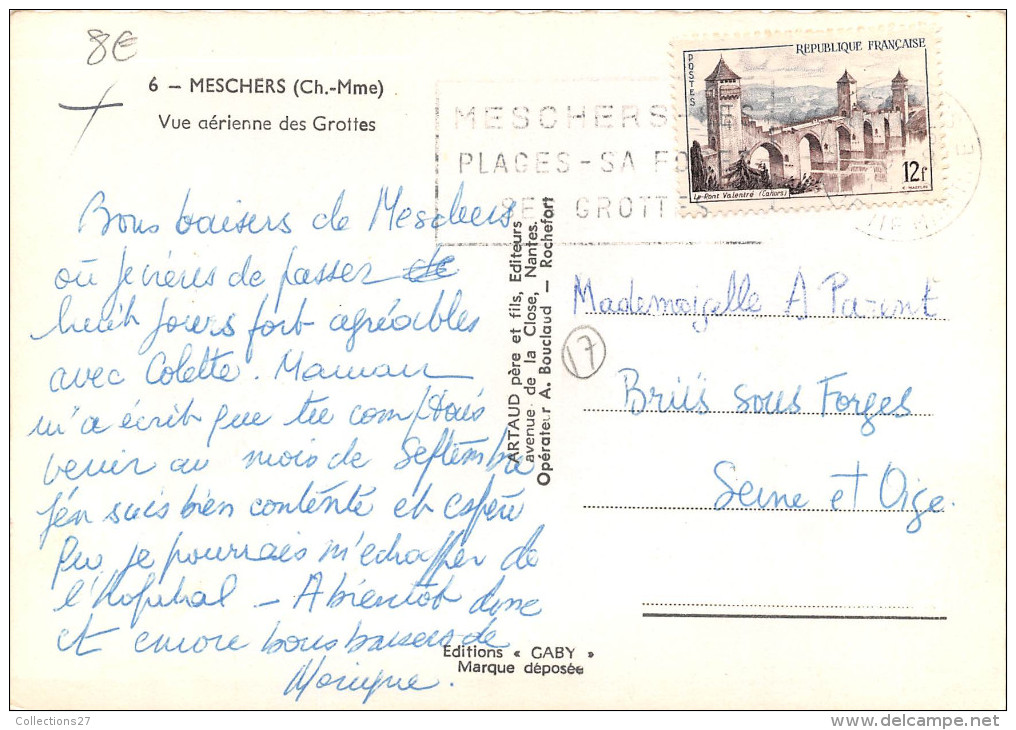 8€
6 — MESCHERS (Ch.-Mme)
Vue aérienne des Grottes
MESCHERS-SES
PLAGES-SA FO
SES GROTTES
POSTES
REPUBLIQUE FRANÇAISE
12f
Le Pont Valentré (Cahors)
Bons baisers de Meschers
où je viens de passer de
huit jours fort agréables
avec Colette. Maman
m'a écrit que tu comptais
venir au mois de Septembre
j'en suis bien contente et espère
que je pourrais m'echapper de
l'hopital - A bientôt donc
et encore bons baisers de
Monique.
ARTAUD père et fils, Editeurs
avenue de la Close, Nantes.
Opérateur A. Bouclaud — Rochefort
Mademoizelle A Parent
17
Briis sous Forges
Seine et Oise.
Editions « GABY »
Marque déposée
Collections27
delcampe.net